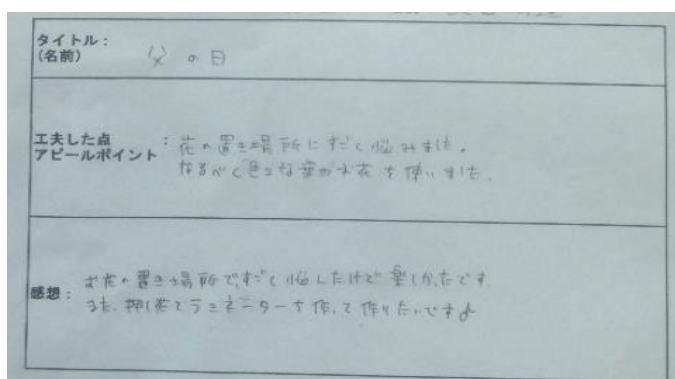 タイトル：
(名前) 父の日
工夫した点
アピールポイント：花の置き場所にすごく悩みました。
なるべく色々な葉がお花を使いました。
お花の置き場所で、すごく悩んだけど楽しかったです。
感想：
また、押し花てラミネーターを使って作りたいです♪